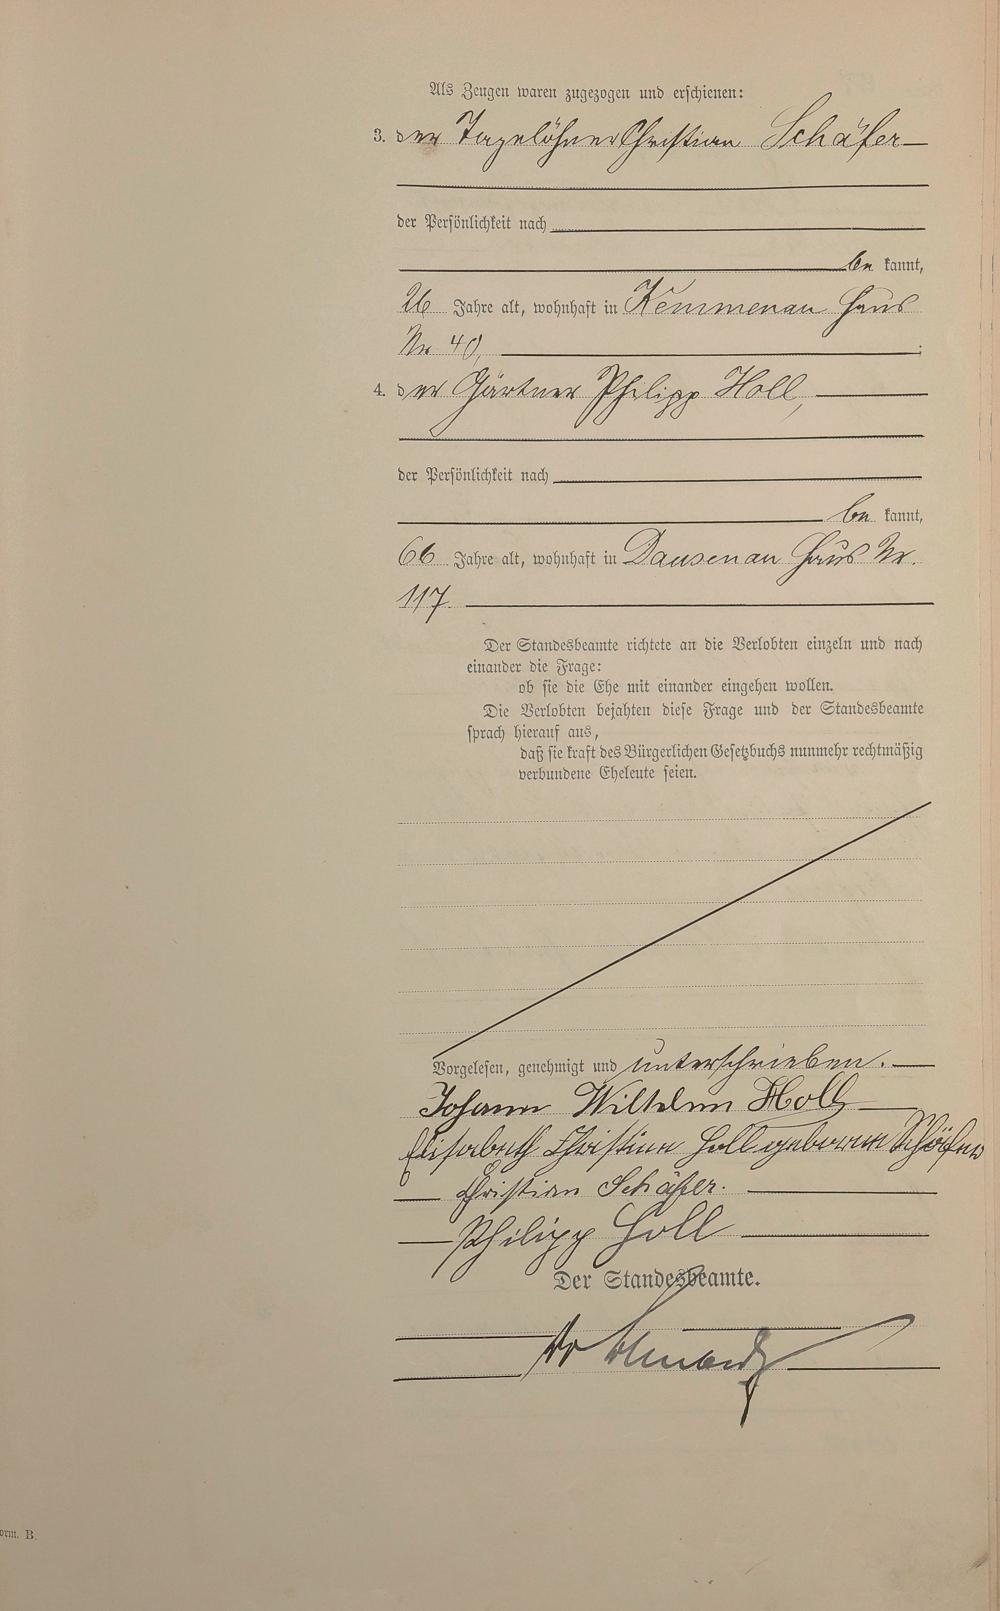 Als Zeugen waren zugezogen und erschienen:
3. der Tagelöhner Christian Schäfer
der Persönlichkeit nach
be kannt,
26 Jahre alt, wohnhaft in Kemmenau Haus
Nr 40, ;
4. der Gärtner Philipp Holl,
der Persönlichkeit nach
be kannt,
66 Jahre alt, wohnhaft in Dausenau Haus Nr.
117.
Der Standesbeamte richtete an die Verlobten einzeln und nach
einander die Frage:
ob sie die Ehe mit einander eingehen wollen.
Die Verlobten bejahten diese Frage und der Standesbeamte
sprach hierauf aus,
daß sie kraft des Bürgerlichen Gesetzbuchs nunmehr rechtmäßig
verbundene Eheleute seien.
Vorgelesen, genehmigt und unterschrieben.
Johann Wilhelm Holl
Elisabeth Christine Holl geborene Schäfer
Christian Schäfer.
Philipp Holl
Der Standesbeamte.
orm. B.